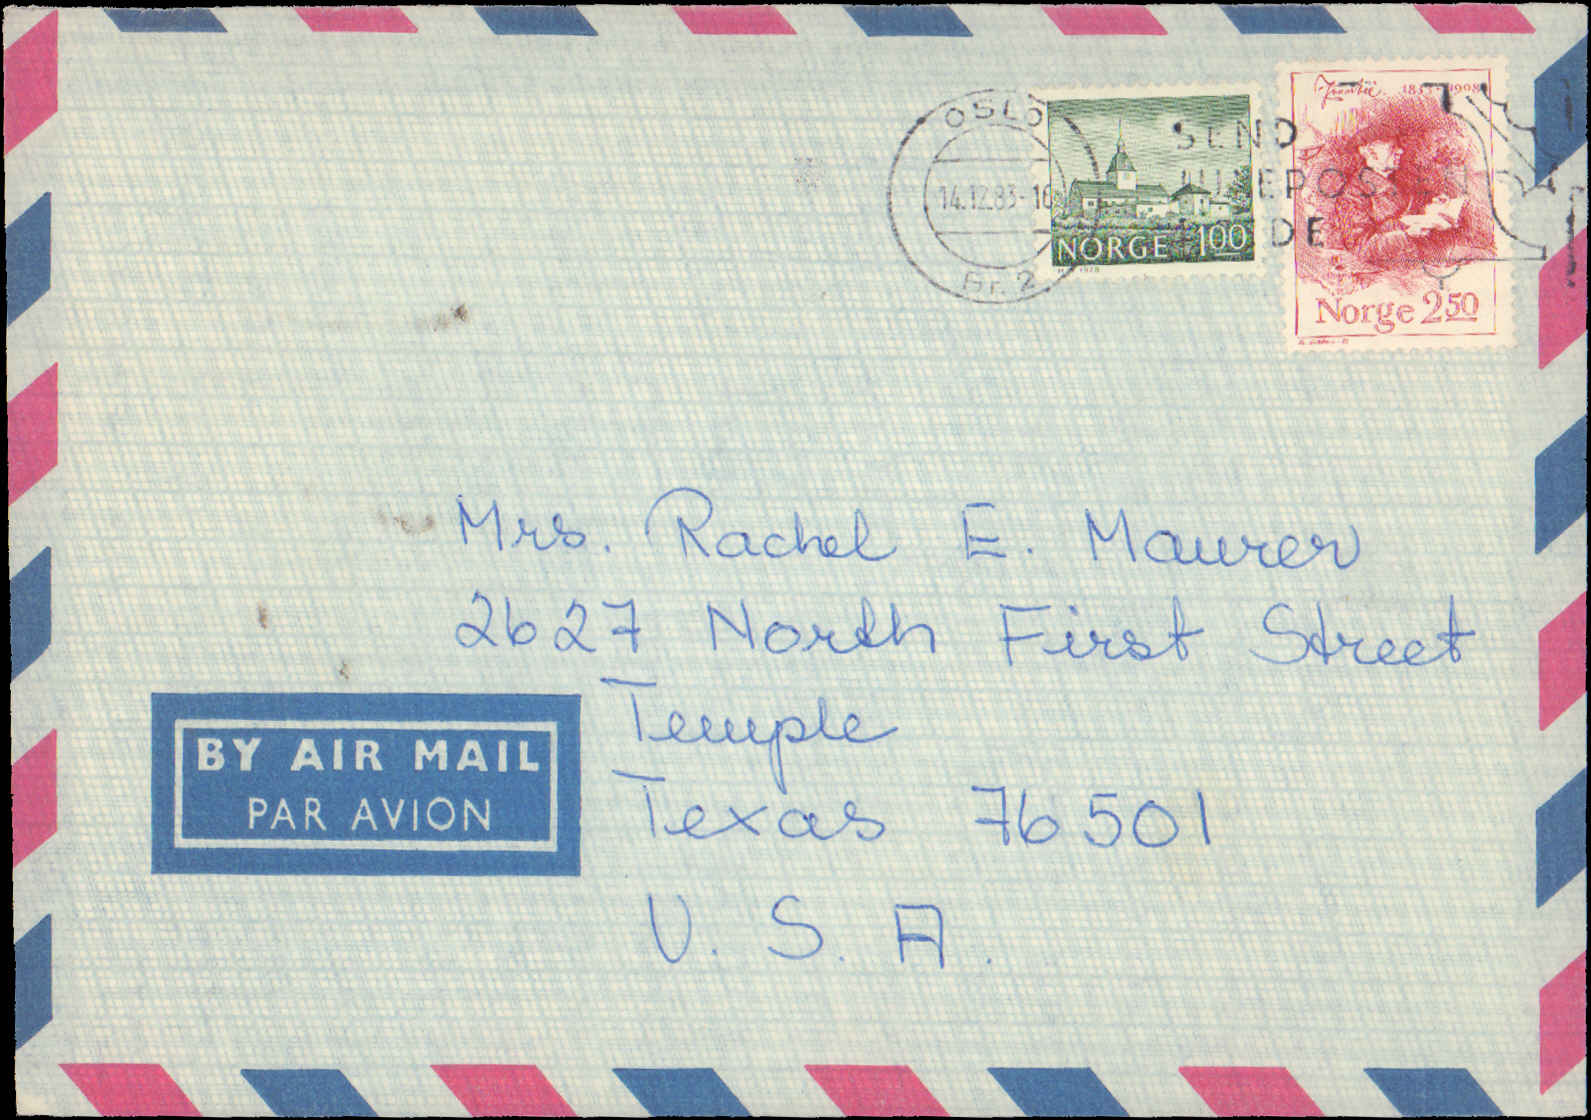 OSLO
14.12.83-16
Br. 2
SEND
JULEPOSTEN
DE
NORGE 100
1978
1835 1908
Norge 250
Mrs. Rachel E. Maurer
2627 North First Street
Temple
Texas 76501
U. S. A.
BY AIR MAIL
PAR AVION